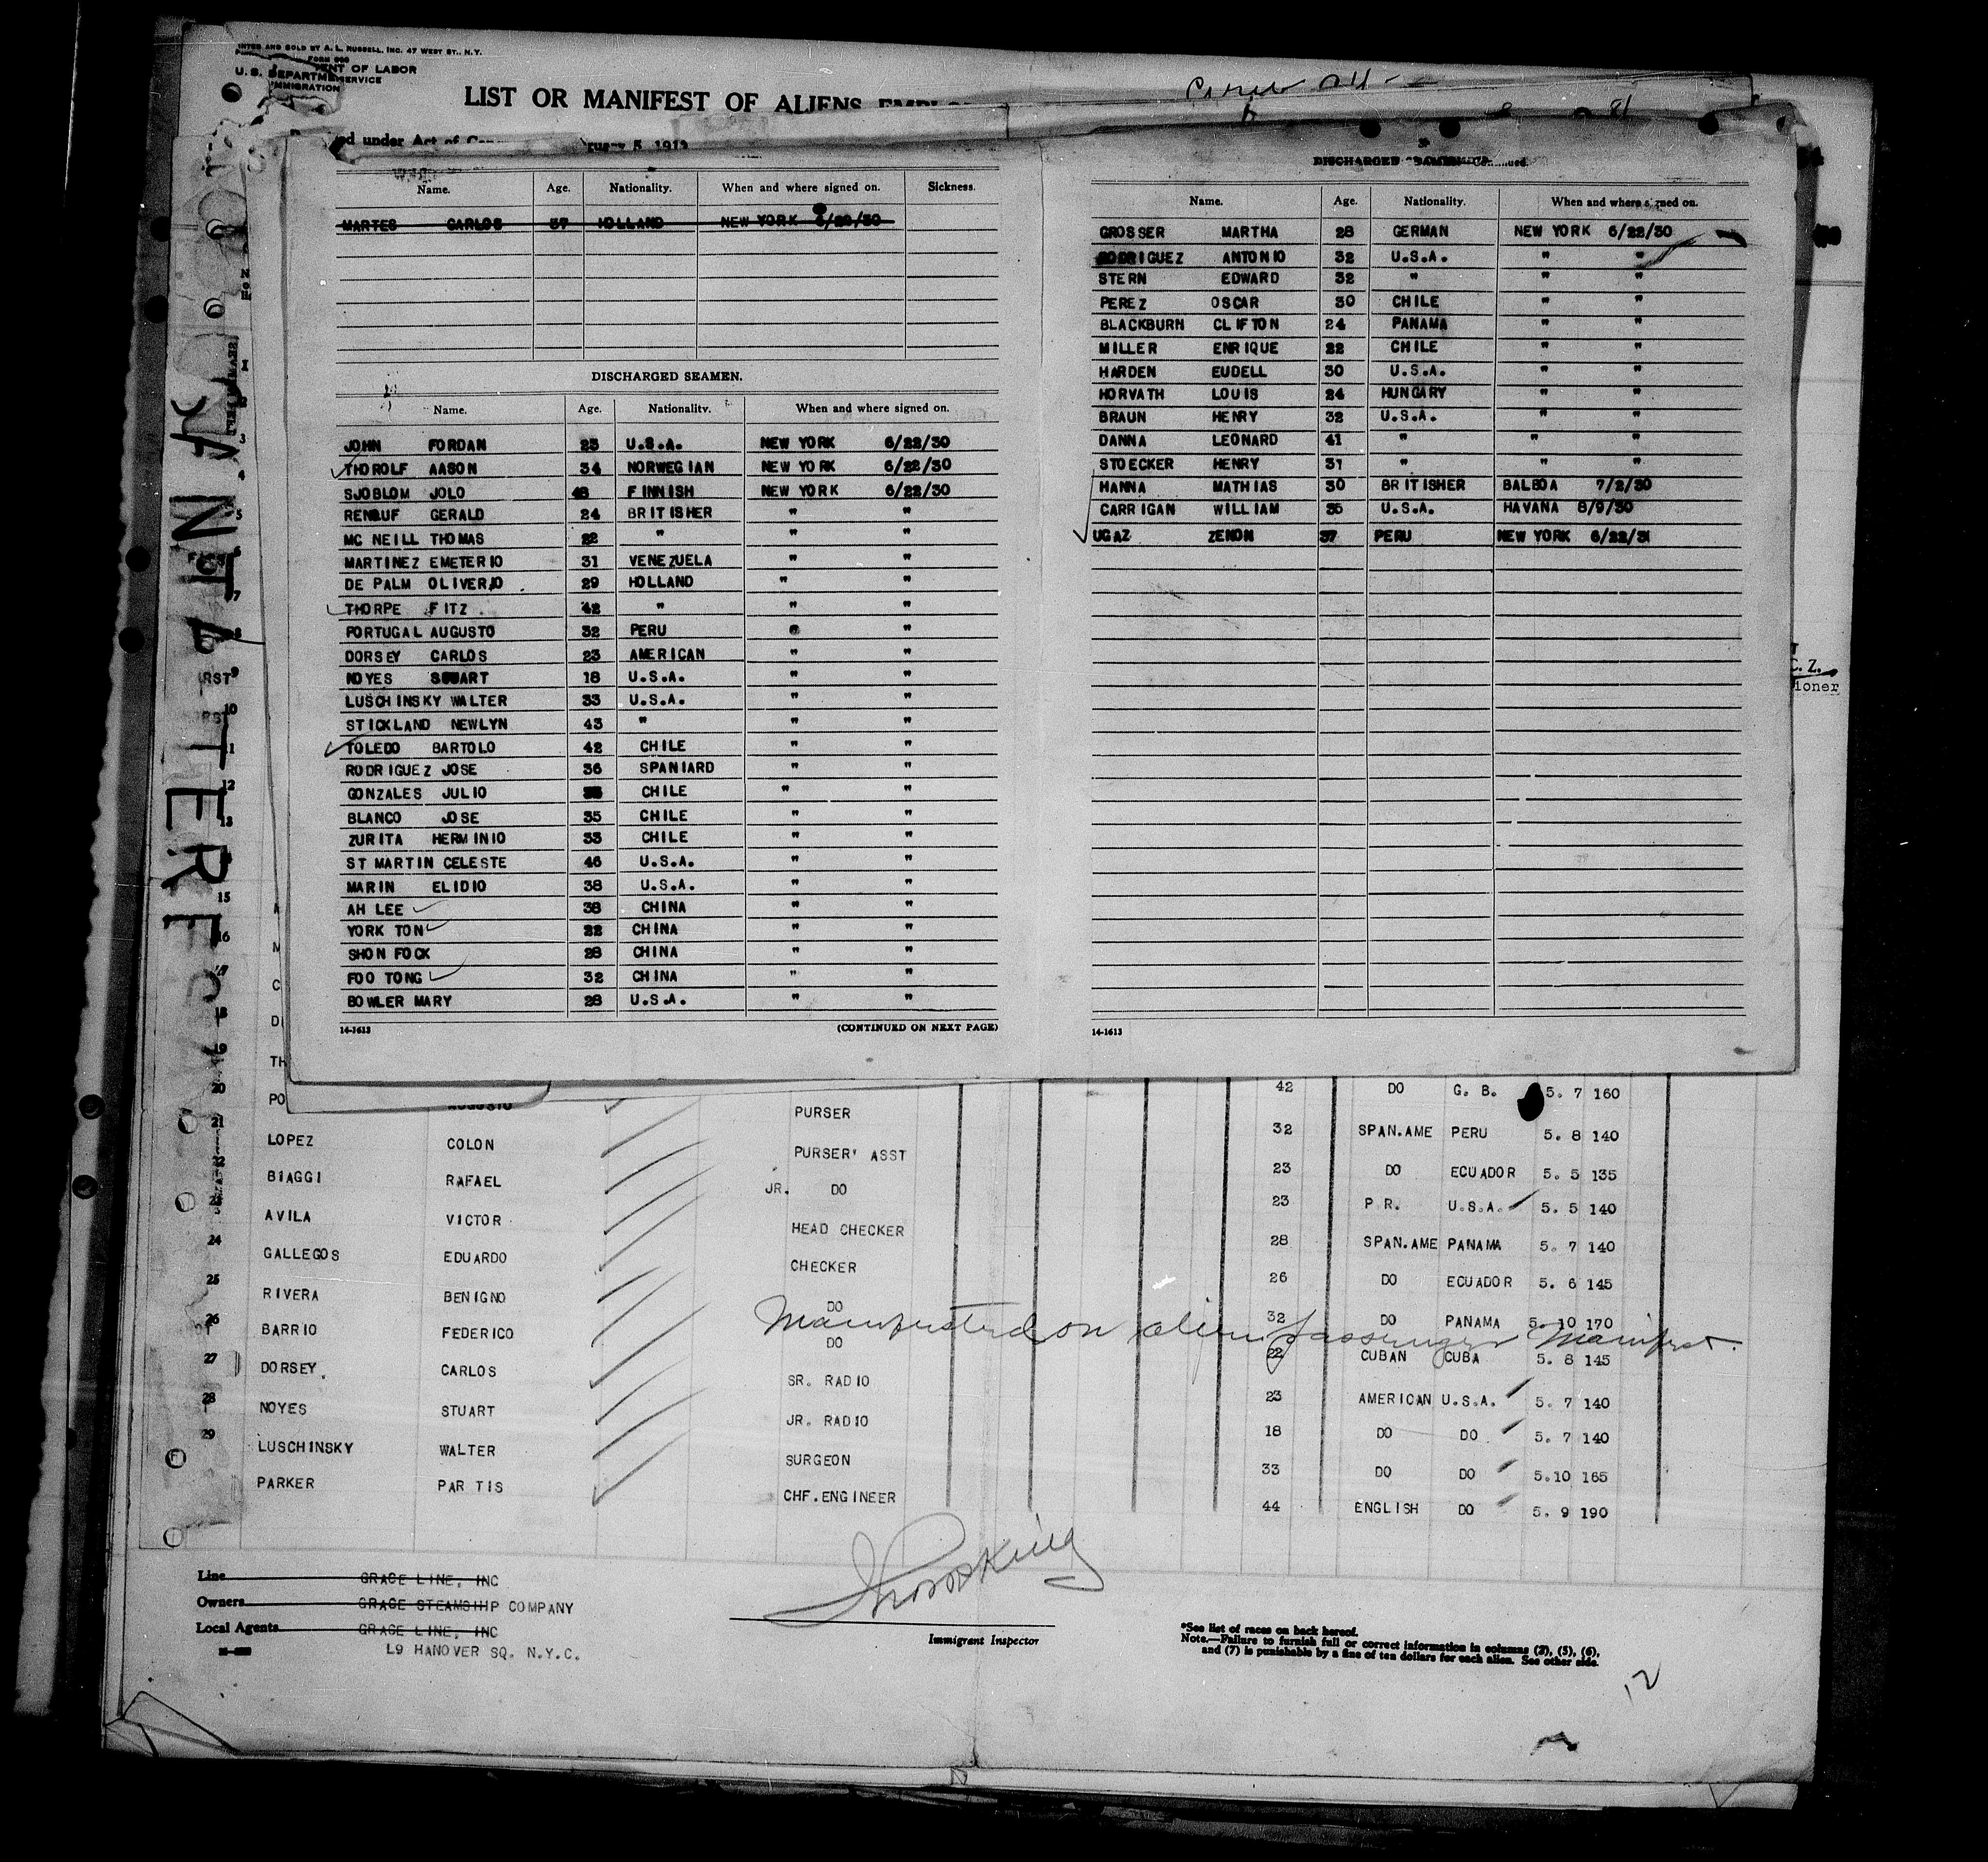 INTED AND SOLD BY A. L. RUSSELL, INC. 47 WEST ST., N.Y.
U. S. DEPARTMENT OF LABOR
IMMIGRATION SERVICE
LIST OR MANIFEST OF ALIENS
under Act of
ruary 5, 191
Name. Age. Nationality. When and where signed on. Sickness.
MARTES CARLOS 37 HOLLAND NEW YORK 6/22/30
DISCHARGED SEAMEN.
Name. Age. Nationality. When and where signed on.
JOHN FORDAN 23 U.S.A. NEW YORK 6/22/30
THOROLF AASON 34 NORWEGIAN NEW YORK 6/22/30
SJOBLOM JOLO 43 FINNISH NEW YORK 6/22/30
RENOUF GERALD 24 BRITISHER " "
MC NEILL THOMAS 22 " " "
MARTINEZ EMETERIO 31 VENEZUELA " "
DE PALM OLIVERIO 29 HOLLAND " "
THORPE FITZ 42 " " "
PORTUGAL AUGUSTO 32 PERU " "
DORSEY CARLOS 23 AMERICAN " "
NOYES STUART 18 U.S.A. " "
LUSCHINSKY WALTER 33 U.S.A. " "
STICKLAND NEWLYN 43 " " "
TOLEDO BARTOLO 42 CHILE " "
RODRIGUEZ JOSE 36 SPANIARD " "
GONZALES JULIO CHILE " "
BLANCO JOSE 35 CHILE " "
ZURITA HERMINIO 33 CHILE " "
ST MARTIN CELESTE 46 U.S.A. " "
MARIN ELIDIO 38 U.S.A. " "
AH LEE 38 CHINA " "
YORK TON 22 CHINA " "
SHON FOCK 28 CHINA " "
FOO TONG 32 CHINA " "
BOWLER MARY 28 U.S.A. " "
14-1613 (CONTINUED ON NEXT PAGE)
DISCHARGED SEAMEN—Continued
Name. Age. Nationality. When and where signed on.
GROSSER MARTHA 28 GERMAN NEW YORK 6/22/30
RODRIGUEZ ANTONIO 32 U.S.A. " "
STERN EDWARD 32 " " "
PEREZ OSCAR 30 CHILE " "
BLACKBURN CLIFTON 24 PANAMA " "
MILLER ENRIQUE 22 CHILE " "
HARDEN EUDELL 30 U.S.A. " "
HORVATH LOUIS 24 HUNGARY " "
BRAUN HENRY 32 U.S.A. " "
DANNA LEONARD 41 " " "
STOECKER HENRY 31 " " "
HANNA MATHIAS 30 BRITISHER BALBOA 7/2/30
CARRIGAN WILLIAM 35 U.S.A. HAVANA 8/9/30
UGAZ ZENON 37 PERU NEW YORK 6/22/31
14-1613
C. Z.
ioner
SANTA TERESA
42 DO G. B. 5. 7 160
PO AUGUSTO PURSER 32 SPAN.AME PERU 5. 8 140
LOPEZ COLON PURSER' ASST 23 DO ECUADOR 5. 5 135
BIAGGI RAFAEL JR. DO 23 P.R. U.S.A. 5. 5 140
AVILA VICTOR HEAD CHECKER 28 SPAN.AME PANAMA 5. 7 140
GALLEGOS EDUARDO CHECKER 26 DO ECUADOR 5. 6 145
RIVERA BENIGNO DO 32 DO PANAMA 5. 10 170
Manifested on alien passenger manifest.
BARRIO FEDERICO DO 22 CUBAN CUBA 5. 8 145
DORSEY. CARLOS SR. RADIO 23 AMERICAN U.S.A. 5. 7 140
NOYES STUART JR. RADIO 18 DO DO 5. 7 140
LUSCHINSKY WALTER SURGEON 33 DO DO 5.10 165
PARKER PARTIS CHF.ENGINEER 44 ENGLISH DO 5. 9 190
Line GRACE LINE, INC
Owners GRACE STEAMSHIP COMPANY
Local Agents GRACE LINE, INC
L9 HANOVER SQ. N.Y.C.
Immigrant Inspector
*See list of races on back hereof.
Note.—Failure to furnish full or correct information in columns (2), (5), (6),
and (7) is punishable by a fine of ten dollars for each alien. See other side.
12